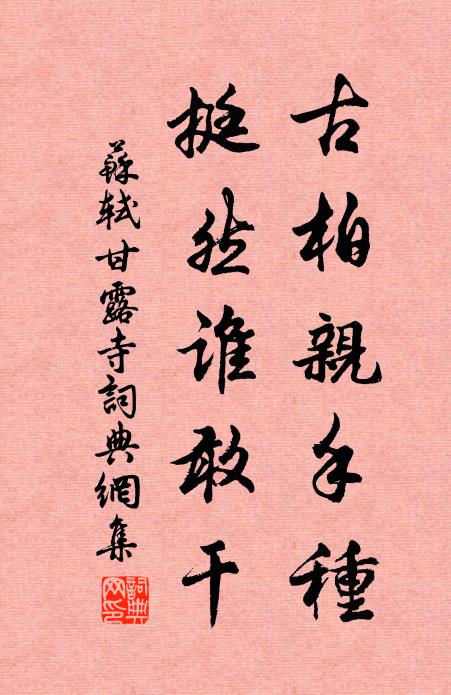 古柏親手種
挺然誰敢干
蘇軾甘露寺詞典網集
詞典網印